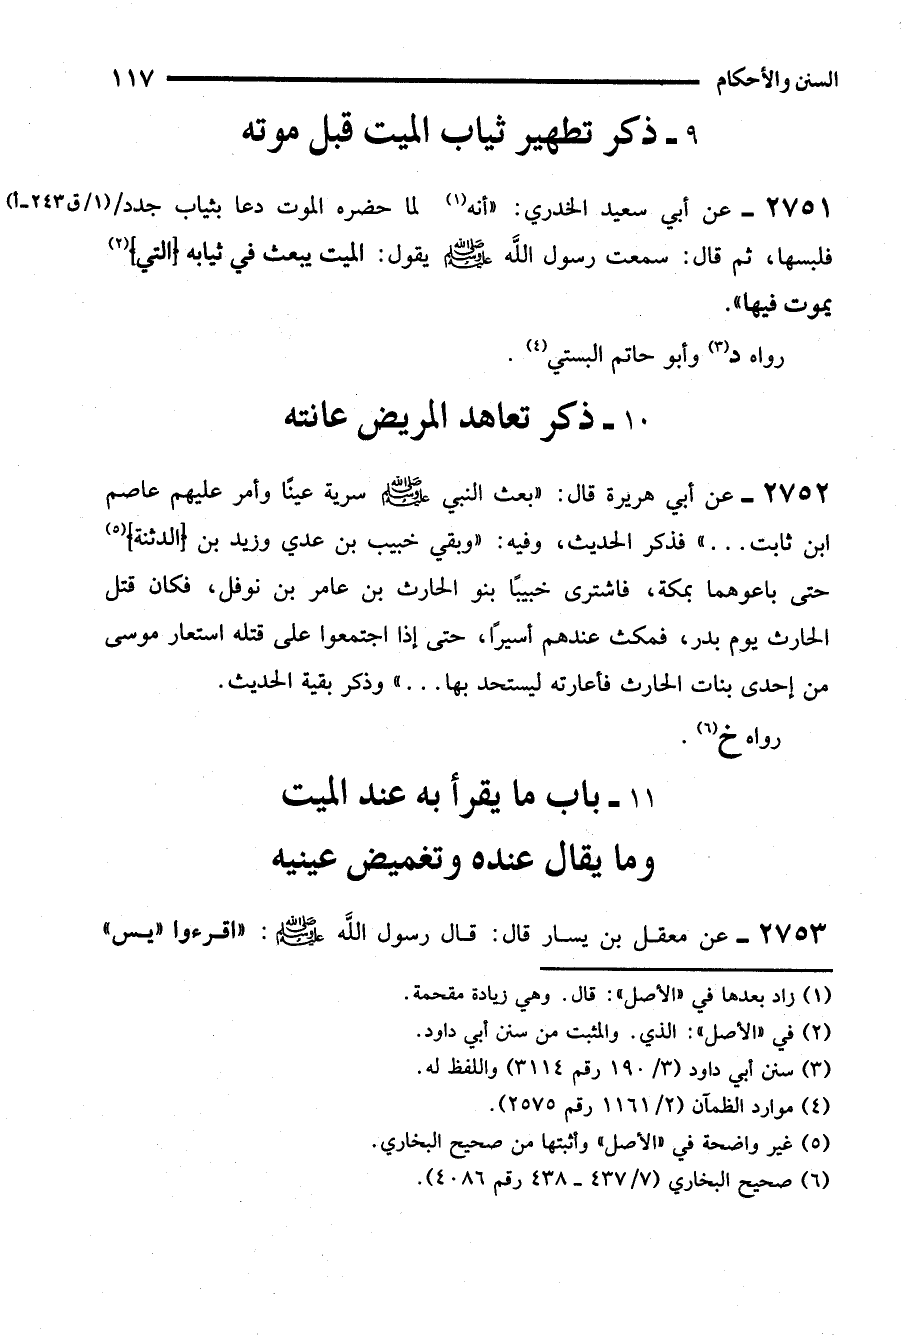 السنن والأحكام ١١٧
٩ ـ ذكر تطهير ثياب الميت قبل موته
٢٧٥١ ـ عن أبي سعيد الخدري: «أنه(١) لما حضره الموت دعا بثياب جدد/(١/ق٢٤٣-أ)
فلبسها، ثم قال: سمعت رسول اللَّه ﷺ يقول: الميت يبعث في ثيابه {التي}(٢)
يموت فيها».
رواه د(٣) وأبو حاتم البستي(٤) .
١٠ ـ ذكر تعاهد المريض عانته
٢٧٥٢ ـ عن أبي هريرة قال: «بعث النبي ﷺ سرية عينًا وأمر عليهم عاصم
ابن ثابت...» فذكر الحديث، وفيه: «وبقي خبيب بن عدي وزيد بن {الدثنة}(٥)
حتى باعوهما بمكة، فاشترى خبيبًا بنو الحارث بن عامر بن نوفل، فكان قتل
الحارث يوم بدر، فمكث عندهم أسيرًا، حتى إذا اجتمعوا على قتله استعار موسى
من إحدى بنات الحارث فأعارته ليستحد بها...» وذكر بقية الحديث.
رواه خ(٦) .
١١ ـ باب ما يقرأ به عند الميت
وما يقال عنده وتغميض عينيه
٢٧٥٣ ـ عن معقل بن يسار قال: قال رسول اللَّه ﷺ: «اقرءوا «يس»
(١) زاد بعدها في «الأصل»: قال. وهي زيادة مقحمة.
(٢) في «الأصل»: الذي. والمثبت من سنن أبي داود.
(٣) سنن أبي داود (٣/ ١٩٠ رقم ٣١١٤) واللفظ له.
(٤) موارد الظمآن (٢/ ١١٦١ رقم ٢٥٧٥).
(٥) غير واضحة في «الأصل» وأثبتها من صحيح البخاري.
(٦) صحيح البخاري (٧/ ٤٣٧ ـ ٤٣٨ رقم ٤٠٨٦).